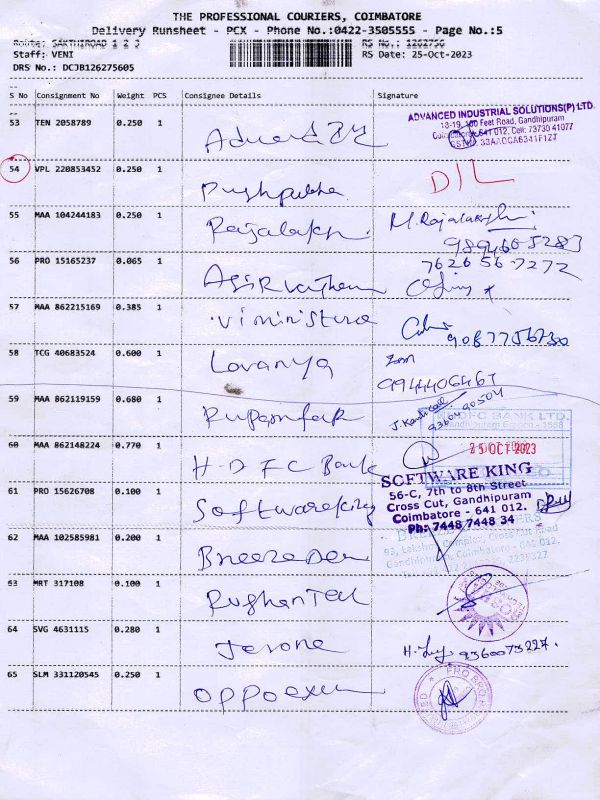 THE PROFESSIONAL COURIERS, COIMBATORE
Delivery Runsheet - PCX - Phone No.:0422-3505555 - Page No.:5
Route: SAKTHIROAD 1 2 3 RS No.: 1262756
Staff: VENI RS Date: 25-Oct-2023
DRS No.: DCJB126275605
S No Consignment No Weight PCS Consignee Details Signature
53 TEN 2058789 0.250 1
ADVANCED INDUSTRIAL SOLUTIONS(P) LTD.
100 Feet Road, Gandhipuram
641 012, Cell: 73730 41077
54 VPL 220853452 0.250 1 Pushpabha DIL
55 MAA 104244183 0.250 1 Rajalaksh M. Rajalakshmi
9894605283
56 PRO 15165237 0.065 1
7626567272
57 MAA 862215169 0.385 1 Viministure
9087756730
58 TCG 40683524 0.600 1 Lavanya
9944406467
59 MAA 862119159 0.680 1
9360490504
HDFC BANK LTD.
60 MAA 862148224 0.770 1 H-D F C Bank
25 OCT 2023
61 PRO 15626708 0.100 1 Softwareking
SOFTWARE KING
56-C, 7th to 8th Street
Cross Cut, Gandhipuram
Coimbatore - 641 012.
Ph: 7448 7448 34
62 MAA 102585981 0.200 1
93, Lakshmi Complex, Cross Cut Road
Gandhipuram, Coimbatore - 641 012.
63 MRT 317108 0.100 1
64 SVG 4631115 0.280 1 Jerone
9360073227.
65 SLM 331120545 0.250 1